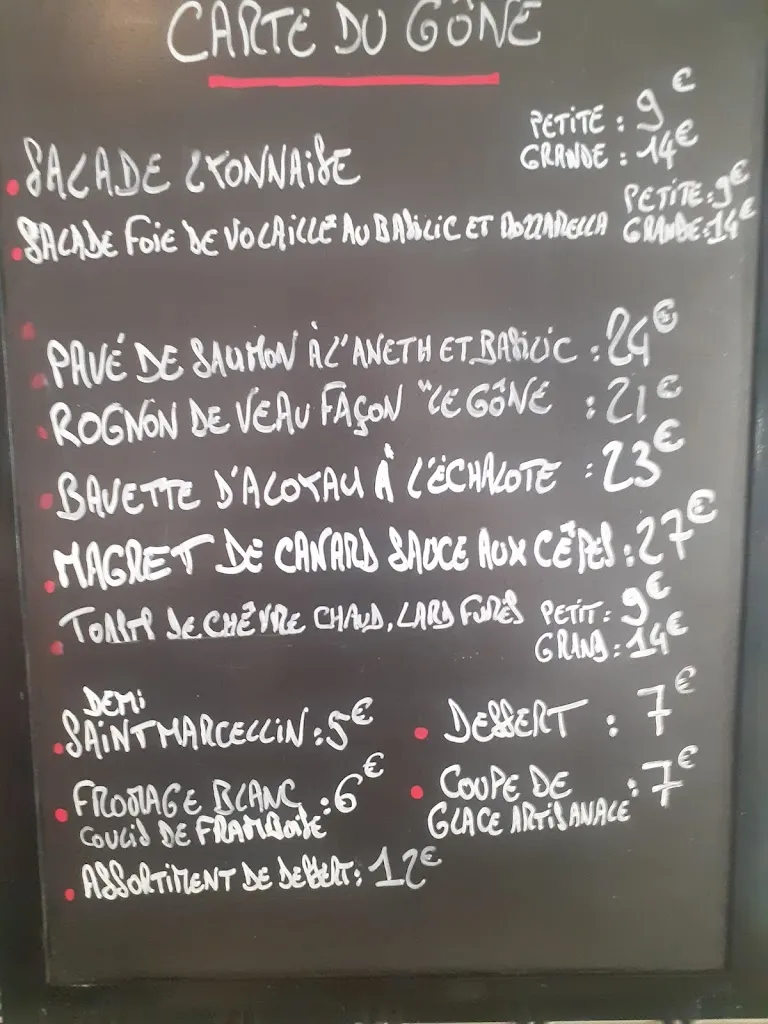 CARTE DU GÔNE
PETITE : 9€
SALADE LYONNAISE GRANDE : 14€
PETITE : 9€
SALADE FOIE DE VOLAILLE AU BASILIC ET MOZZARELLA GRANDE : 14€
PAVÉ DE SAUMON À L'ANETH ET BASILIC : 24€
ROGNON DE VEAU FAÇON "LE GÔNE : 21€
BAVETTE D'ALOYAU À L'ÉCHALOTE : 23€
MAGRET DE CANARD SAUCE AUX CÊPES : 27€
TOASTS DE CHÊVRE CHAUD, LARD FUMÉS PETIT : 9€
GRAND : 14€
DEMI
SAINT MARCELLIN : 5€
DESSERT : 7€
FROMAGE BLANC : 6€
COULIS DE FRAMBOISE
COUPE DE : 7€
GLACE ARTISANALE
ASSORTIMENT DE DESSERT : 12€